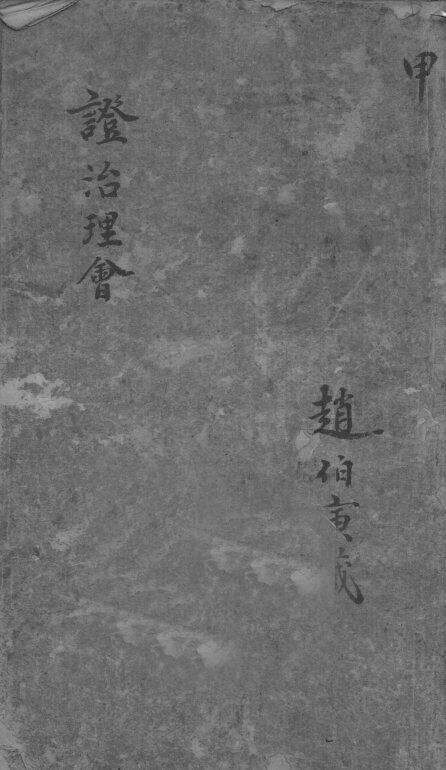 甲
趙伯寅
證治理會